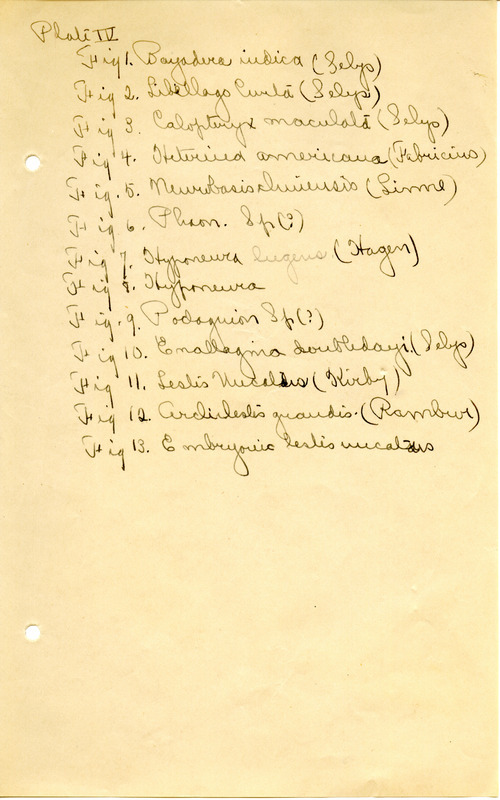 Plate IV
Fig 1. Bayadera indica (Selys)
Fig 2. Libellago Curta (Selys)
Fig 3. Calopteryx maculata (Selys)
Fig 4. Heterina americana (Fabricius)
Fig. 5. Neurobasis chinensis (Linne)
Fig 6. Phaon. Sp (?)
Fig 7. Hyponeura lugens (Hagen)
Fig 8. Hyponeura
Fig. 9. Podagrion Sp (?)
Fig 10. Enallagma doubledayi. (Selys)
Fig 11. Lestis (Kirby)
Fig 12. Archilestis grandis. (Rambur)
Fig 13. Embryonic lestis